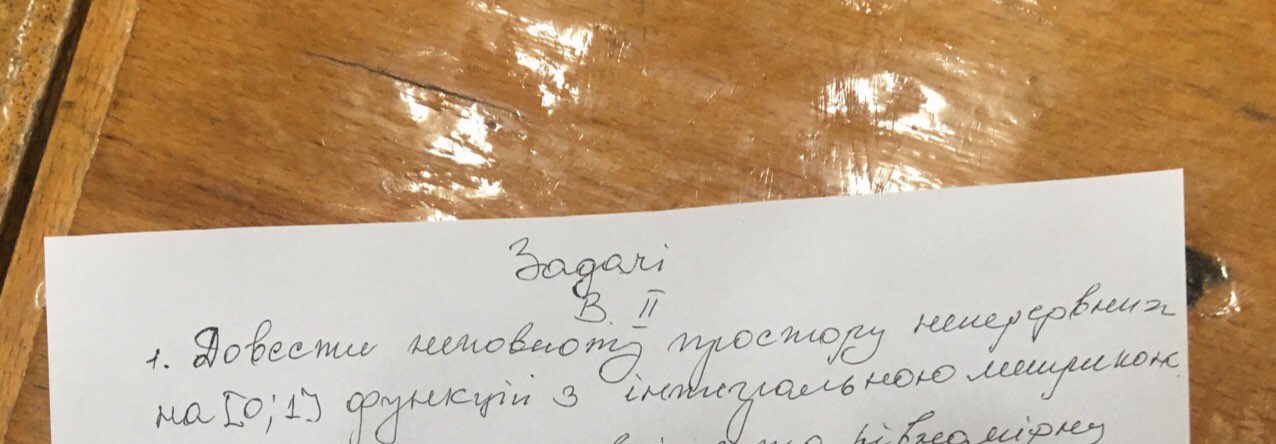 Задачі
В. II
1. Довести неповноту простору неперервних
на [0;1] функцій з інтегральною метрикою.
та рівномірну